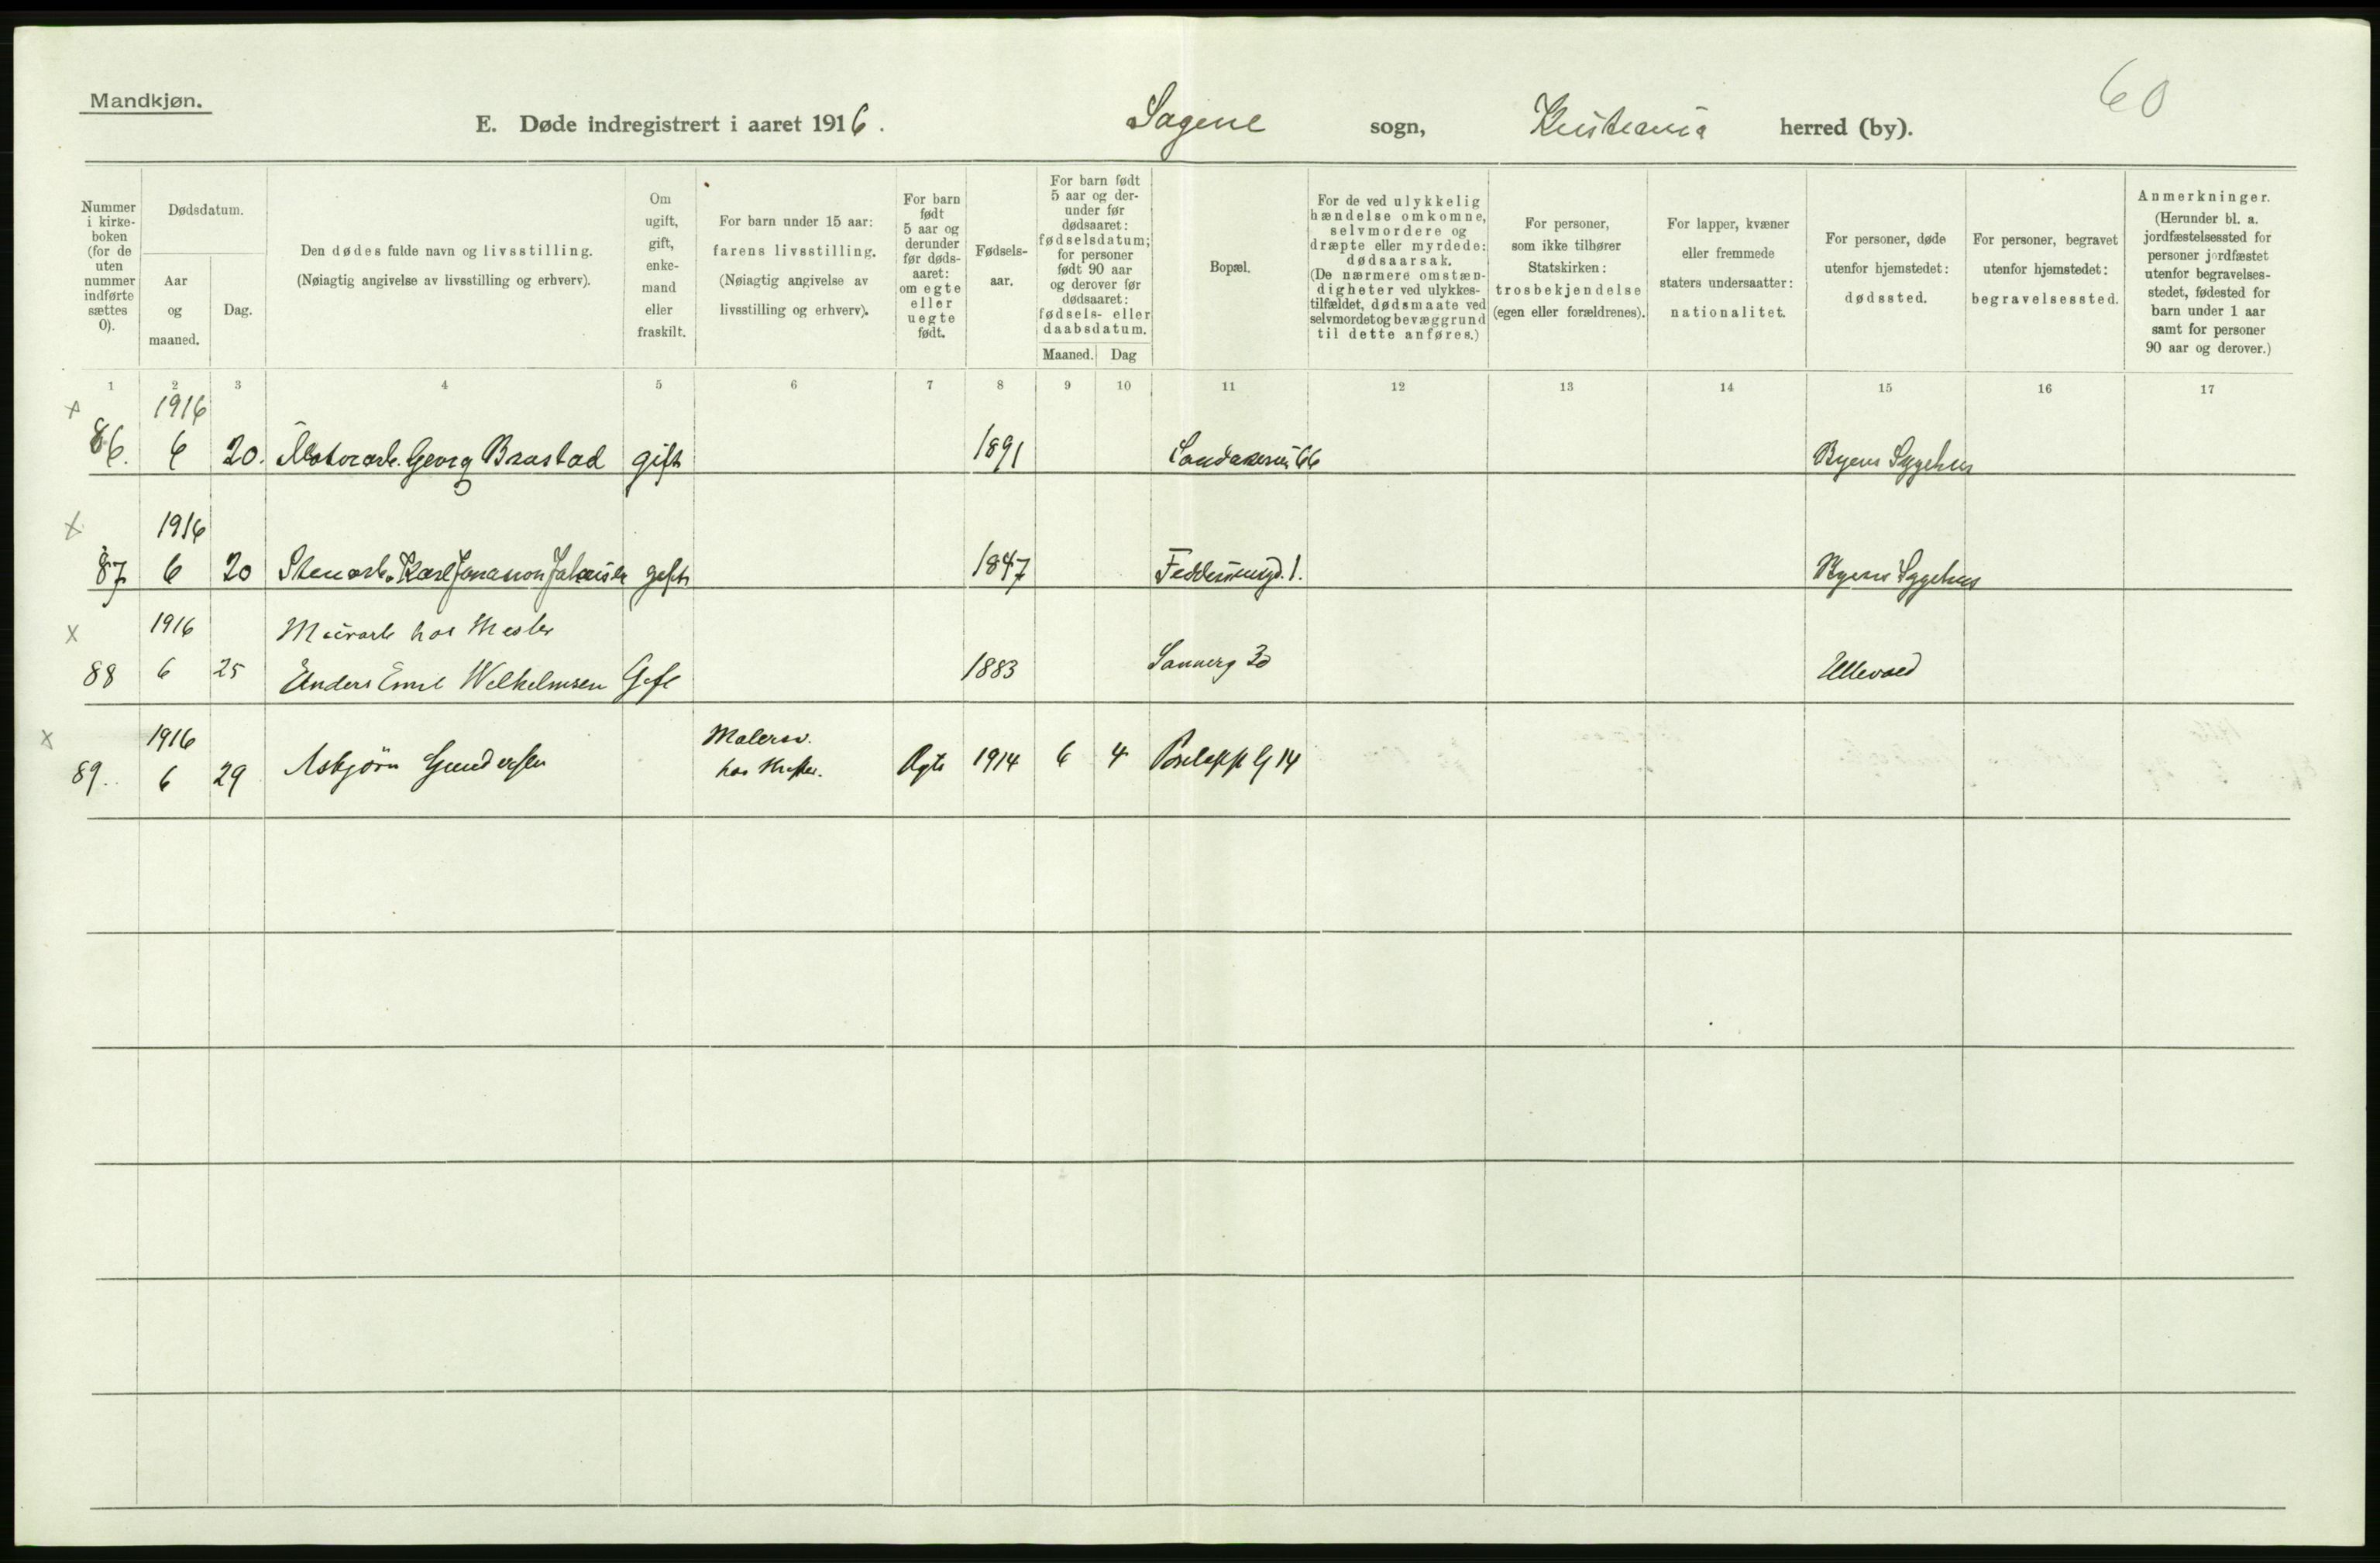 60
Mandkjøn.
E. Døde indregistrert i aaret 1916. Sagene sogn, Kristiania herred (by).
Nummer
i kirke-
boken
(for de
uten
nummer
indførte
sættes
0).
Dødsdatum.
Aar
og
maaned.
Dag.
Den dødes fulde navn og livsstilling.
(Nøiagtig angivelse av livsstilling og erhverv).
Om
ugift,
gift,
enke-
mand
eller
fraskilt.
For barn under 15 aar:
farens livsstilling.
(Nøiagtig angivelse av
livsstilling og erhverv).
For barn
født
5 aar og
derunder
før døds-
aaret:
om egte
eller
uegte
født.
Fødsels-
aar.
For barn født
5 aar og der-
under før
dødsaaret:
fødselsdatum;
for personer
født 90 aar
og derover før
dødsaaret:
fødsels- eller
daabsdatum.
Maaned. Dag
Bopæl.
For de ved ulykkelig
hændelse omkomne,
selvmordere og
dræpte eller myrdede:
dødsaarsak.
(De nærmere omstæn-
digheter ved ulykkes-
tilfældet, dødsmaate ved
selvmord og bevæggrund
til dette anføres.)
For personer,
som ikke tilhører
Statskirken:
trosbekjendelse
(egen eller forældrenes).
For lapper, kvæner
eller fremmede
staters undersaatter:
nationalitet.
For personer, døde
utenfor hjemstedet:
dødssted.
For personer, begravet
utenfor hjemstedet:
begravelsessted.
Anmerkninger.
(Herunder bl. a.
jordfæstelsessted for
personer jordfæstet
utenfor begravelses-
stedet, fødested for
barn under 1 aar
samt for personer
90 aar og derover.)
1 2 3 4 5 6 7 8 9 10 11 12 13 14 15 16 17
x 1916
86. 6 20. Motorarb. Georg Brastad gift 1891 Sandakervei 66 Byens Sygehus
x 1916
87 6 20 Stenarb. Karl Jonasson Johansen gift 1847 Feddersensgd. 1. Byens Sygehus
x 1916 Murarb hos Mester
88 6 25 Anders Emil Wilhelmsen Gift 1883 Sannerg 30 Ullevaal
x 1916 Malersv.
89. 6 29 Asbjörn Gundersen hos Mester. Ægte 1914 6 4 G 14